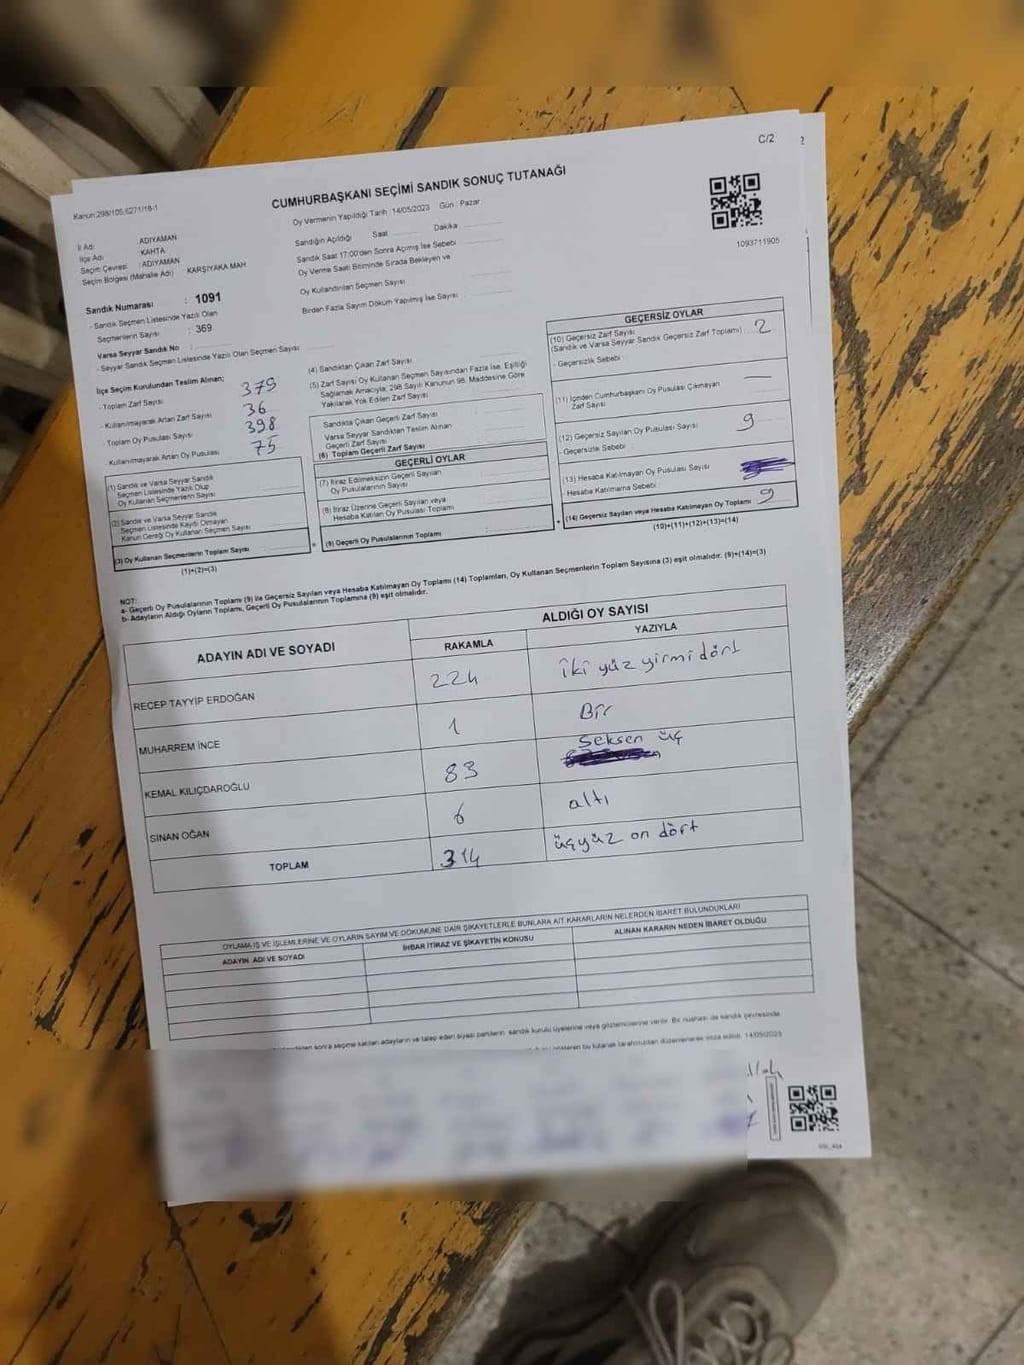 C/2
2
CUMHURBAŞKANI SEÇİMİ SANDIK SONUÇ TUTANAĞI
Kanun:298/105;6271/18-1
Oy Vermenin Yapıldığı Tarih : 14/05/2023 Gün : Pazar
1093711905
İl Adı ADIYAMAN
İlçe Adı KAHTA
Seçim Çevresi : ADIYAMAN
Seçim Bölgesi (Mahalle Adı) KARŞIYAKA MAH
Sandık Numarası : 1091
- Sandık Seçmen Listesinde Yazılı Olan
Seçmenlerin Sayısı : 369
Varsa Seyyar Sandık No :
- Seyyar Sandık Seçmen Listesinde Yazılı Olan Seçmen Sayısı
Sandığın Açıldığı Saat Dakika
Sandık Saat 17:00'den Sonra Açılmış İse Sebebi
Oy Verme Saati Bitiminde Sırada Bekleyen ve
Oy Kullandırılan Seçmen Sayısı
Birden Fazla Sayım Döküm Yapılmış İse Sayısı
İlçe Seçim Kurulundan Teslim Alınan;
- Toplam Zarf Sayısı 379
- Kullanılmayarak Artan Zarf Sayısı 36
- Toplam Oy Pusulası Sayısı 398
- Kullanılmayarak Artan Oy Pusulası 75
(1) Sandık ve Varsa Seyyar Sandık
Seçmen Listesinde Yazılı Olup
Oy Kullanan Seçmenlerin Sayısı
(2) Sandık ve Varsa Seyyar Sandık
Seçmen Listesinde Kaydı Olmayan
Kanun Gereği Oy Kullanan Seçmen Sayısı
(3) Oy Kullanan Seçmenlerin Toplam Sayısı
(1)+(2)=(3)
(4) Sandıktan Çıkan Zarf Sayısı
(5) Zarf Sayısı Oy Kullanan Seçmen Sayısından Fazla İse, Eşitliği
Sağlamak Amacıyla, 298 Sayılı Kanunun 98. Maddesine Göre
Yakılarak Yok Edilen Zarf Sayısı
Sandıkta Çıkan Geçerli Zarf Sayısı
Varsa Seyyar Sandıktan Teslim Alınan
Geçerli Zarf Sayısı
(6) Toplam Geçerli Zarf Sayısı
GEÇERLİ OYLAR
(7) İtiraz Edilmeksizin Geçerli Sayılan
Oy Pusulalarının Sayısı
(8) İtiraz Üzerine Geçerli Sayılan veya
Hesaba Katılan Oy Pusulası Toplamı
(9) Geçerli Oy Pusulalarının Toplamı
GEÇERSİZ OYLAR
(10) Geçersiz Zarf Sayısı
(Sandık ve Varsa Seyyar Sandık Geçersiz Zarf Toplamı) 2
- Geçersizlik Sebebi
(11) İçinden Cumhurbaşkanı Oy Pusulası Çıkmayan
Zarf Sayısı
(12) Geçersiz Sayılan Oy Pusulası Sayısı 9
- Geçersizlik Sebebi
(13) Hesaba Katılmayan Oy Pusulası Sayısı
- Hesaba Katılmama Sebebi
(14) Geçersiz Sayılan veya Hesaba Katılmayan Oy Toplamı 9
(10)+(11)+(12)+(13)=(14)
NOT:
a- Geçerli Oy Pusulalarının Toplamı (9) ile Geçersiz Sayılan veya Hesaba Katılmayan Oy Toplamı (14) Toplamları, Oy Kullanan Seçmenlerin Toplam Sayısına (3) eşit olmalıdır. (9)+(14)=(3)
b- Adayların Aldığı Oyların Toplamı, Geçerli Oy Pusulalarının Toplamına (9) eşit olmalıdır.
ADAYIN ADI VE SOYADI
ALDIĞI OY SAYISI
RAKAMLA YAZIYLA
RECEP TAYYİP ERDOĞAN 224 iki yüz yirmi dört
MUHARREM İNCE 1 Bir
KEMAL KILIÇDAROĞLU 83 Seksen üç
SİNAN OĞAN 6 altı
TOPLAM 314 üçyüz on dört
OYLAMA İŞ VE İŞLEMLERİNE VE OYLARIN SAYIM VE DÖKÜMÜNE DAİR ŞİKAYETLERLE BUNLARA AİT KARARLARIN NELERDEN İBARET BULUNDUKLARI
ADAYIN ADI VE SOYADI İHBAR İTİRAZ VE ŞİKAYETİN KONUSU ALINAN KARARIN NEDEN İBARET OLDUĞU
sonra seçime katılan adayların ve talep eden siyasi partilerin sandık kurulu üyelerine veya gözlemcilerine verilir. Bir nüshası da sandık çevresinde
gösteren bu tutanak tarafımızdan düzenlenerek imza edildi. 14/05/2023